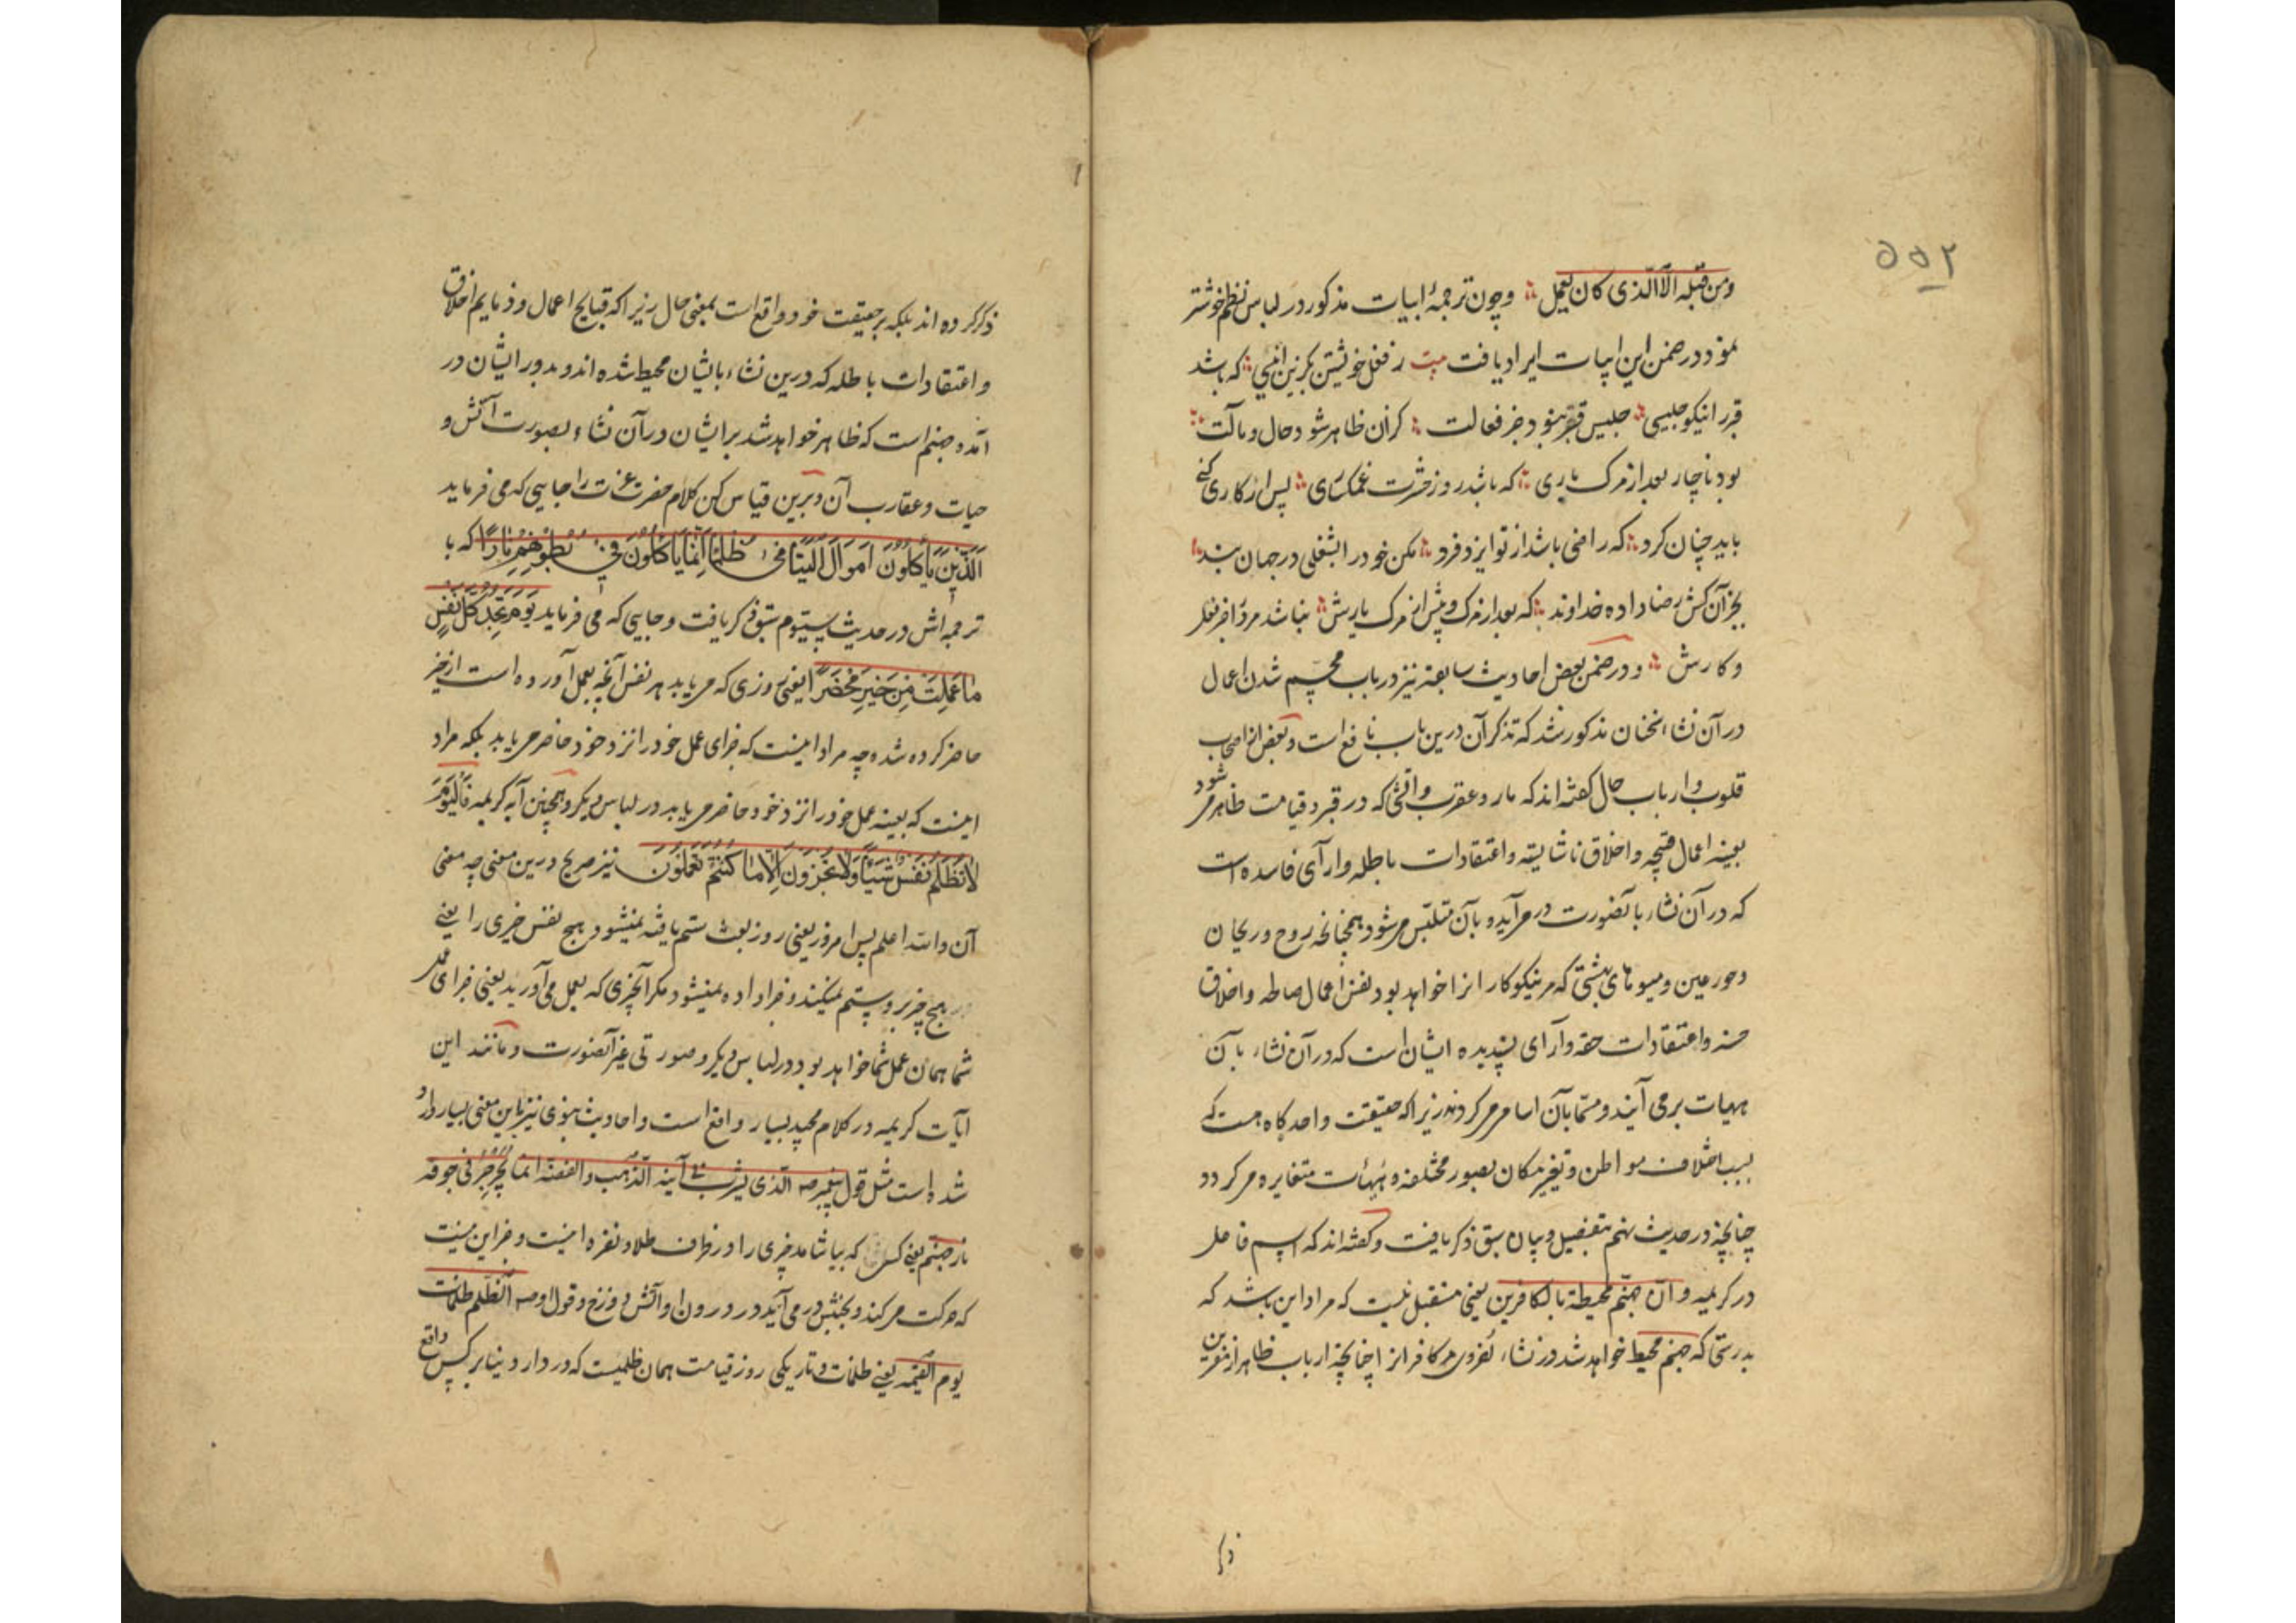 ۵۵۲
ومن قبله الا الذی کان یعمل وچون ترجمهٔ ابیات مذکور در لباس نظم خوشتر
نمود در ضمن این ابیات ایراد یافت بیت ز فعل خویشتن بگزین انیسی که باشد
قبر را نیکو جلیسی جلیس قبر نبود جز فعالت کزان ظاهر شود حال و مآلت
بود ناچار بعد از مرک یاری که باشد روز حشرت غمکساری پس از کاری کنی
باید چنان کرد که راضی باشد از تو ایزد فرد مکن خود را بشغلی در جهان بند
بجز آن کش رضا داده خداوند که بعد از مرک و پیش از مرک یارش نباشد مرد را جز فعل
و کارش و در ضمن بعض احادیث سابقه نیز در باب مجسم شدن اعمال
در آن نشاء سخنان مذکور شد که تذکر آن درین باب نافع است و بعض از اصحاب
قلوب و ارباب حال کفته اند که مار و عقرب و آتشی که در قبر و قیامت ظاهر می شود
بعینه اعمال قبیحه و اخلاق ناشایسته و اعتقادات باطله و آرای فاسده است
که در آن نشاء بآنصورت در می آید و بآن متلبس می شود همچنانخه روح و ریحان
و حور عین و میوهای بهشتی که مر نیکوکارانرا خواهد بود نفس اعمال صالحه و اخلاق
حسنه و اعتقادات حقه و آرای پسندیده ایشان است که در آن نشاء بآن
هیات برمی آیند و مسما بآن اسامی می کردند زیرا که حقیقت واحد کاه هست که
بسبب اختلاف مواطن و تغیر مکان بصور مختلفه و هیئات متغایره می کردد
چنانچه در حدیث نهم بتفصیل و بیان سبق ذکر یافت و کفته اند که اسم فاعل
در کریمه و ان جهنم لمحیطة بالکافرین بمعنی مستقبل نیست که مراد این باشد که
بدرستی که جهنم محیط خواهد شد در نشاء اخروی مر کافرانرا چنانچه ارباب ظاهر از مفسرین
ذکر
ذکر کرده اند بلکه بر حقیقت خود واقع است بمعنی حال زیرا که قبایح اعمال و ذمایم اخلاق
و اعتقادات باطله که درین نشاء بایشان محیط شده اند و بدور ایشان در
آمده جهنم است که ظاهر خواهد شد بر ایشان در آن نشاء بصورت آتش و
حیات و عقارب آن و برین قیاس کن کلام حضرت عزت را جایی که می فرماید
اَلَّذِینَ یَأکُلُونَ اَموَالَ الیَتَامَی ظُلمًا اِنَّمَا یَأکُلُونَ فِی بُطُونِهِم نَارًا که با
ترجمه اش در حدیث بیستوم سبق ذکر یافت و جایی که می فرماید یَومَ تَجِدُ کُلُّ نَفسٍ
مَا عَمِلَت مِن خَیرٍ مُحضَرًا یعنی روزی که می یابد هر نفس آنچه بعمل آورده است از خیر
حاضر کرده شده چه مراد اینست که جزای عمل خود را نزد خود حاضر می یابد بلکه مراد
اینست که بعینه عمل خود را نزد خود حاضر می یابد در لباس دیکر و همچنین آیه کریمه فَالیَومَ
لَا تُظلَمُ نَفسٌ شَیئًا وَلَا تُجزَونَ اِلَّا مَا کُنتُم تَعمَلُونَ نیز صریح درین معنی چه معنی
آن والله اعلم پس امروز یعنی روز بعث ستم یافته نمیشود هیچ نفس چیزی را یعنی
هیچ چیز برو ستم نمیکنند و جزا داده نمیشود مکر آنچیزی که بعمل می آورید یعنی جزای عمل
شما همان عمل شما خواهد بود در لباس دیکر و صورتی غیر آنصورت و مانند این
آیات کریمه در کلام مجید بسیار واقع است و احادیث نبوی نیز باین معنی بسیار وارد
شده است مثل قول پیغمبر صه الذی یشرب فی آنیة الذهب والفضة انما یجرجر فی جوفه
نار جهنم یعنی کسی که بیاشامد چیزی را در ظرف طلا و نقره اینست و جز این نیست
که حرکت می کند و بجنبش در می آید در درون او آتش دوزخ و قول او صه الظلم ظلمات
یوم القیمه یعنی ظلمات و تاریکی روز قیامت همان ظلمیست که در دار دنیا بر کسی واقع